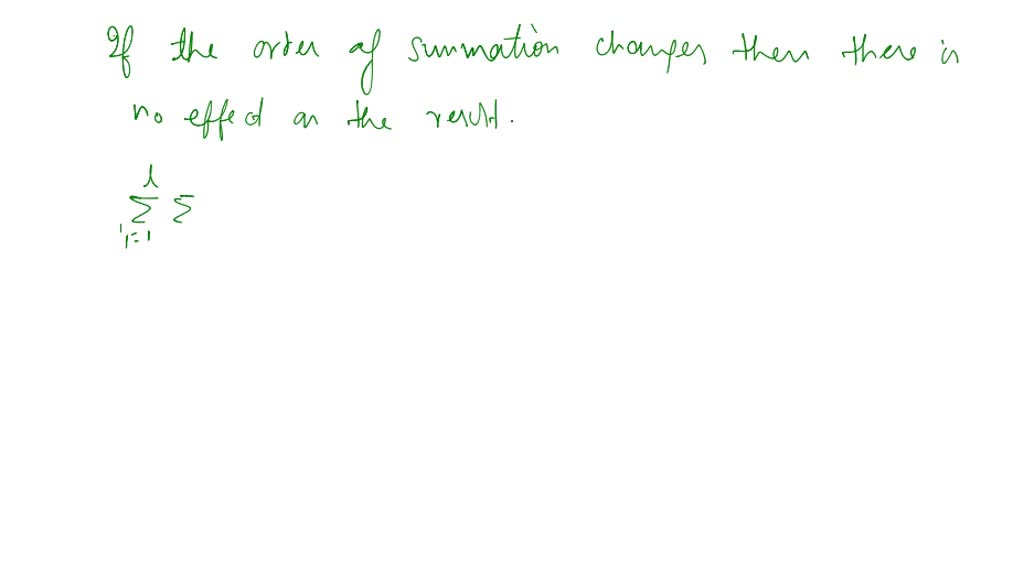 If the order of summation changes then there is
no effect on the result.
l
Σ Σ
i=1